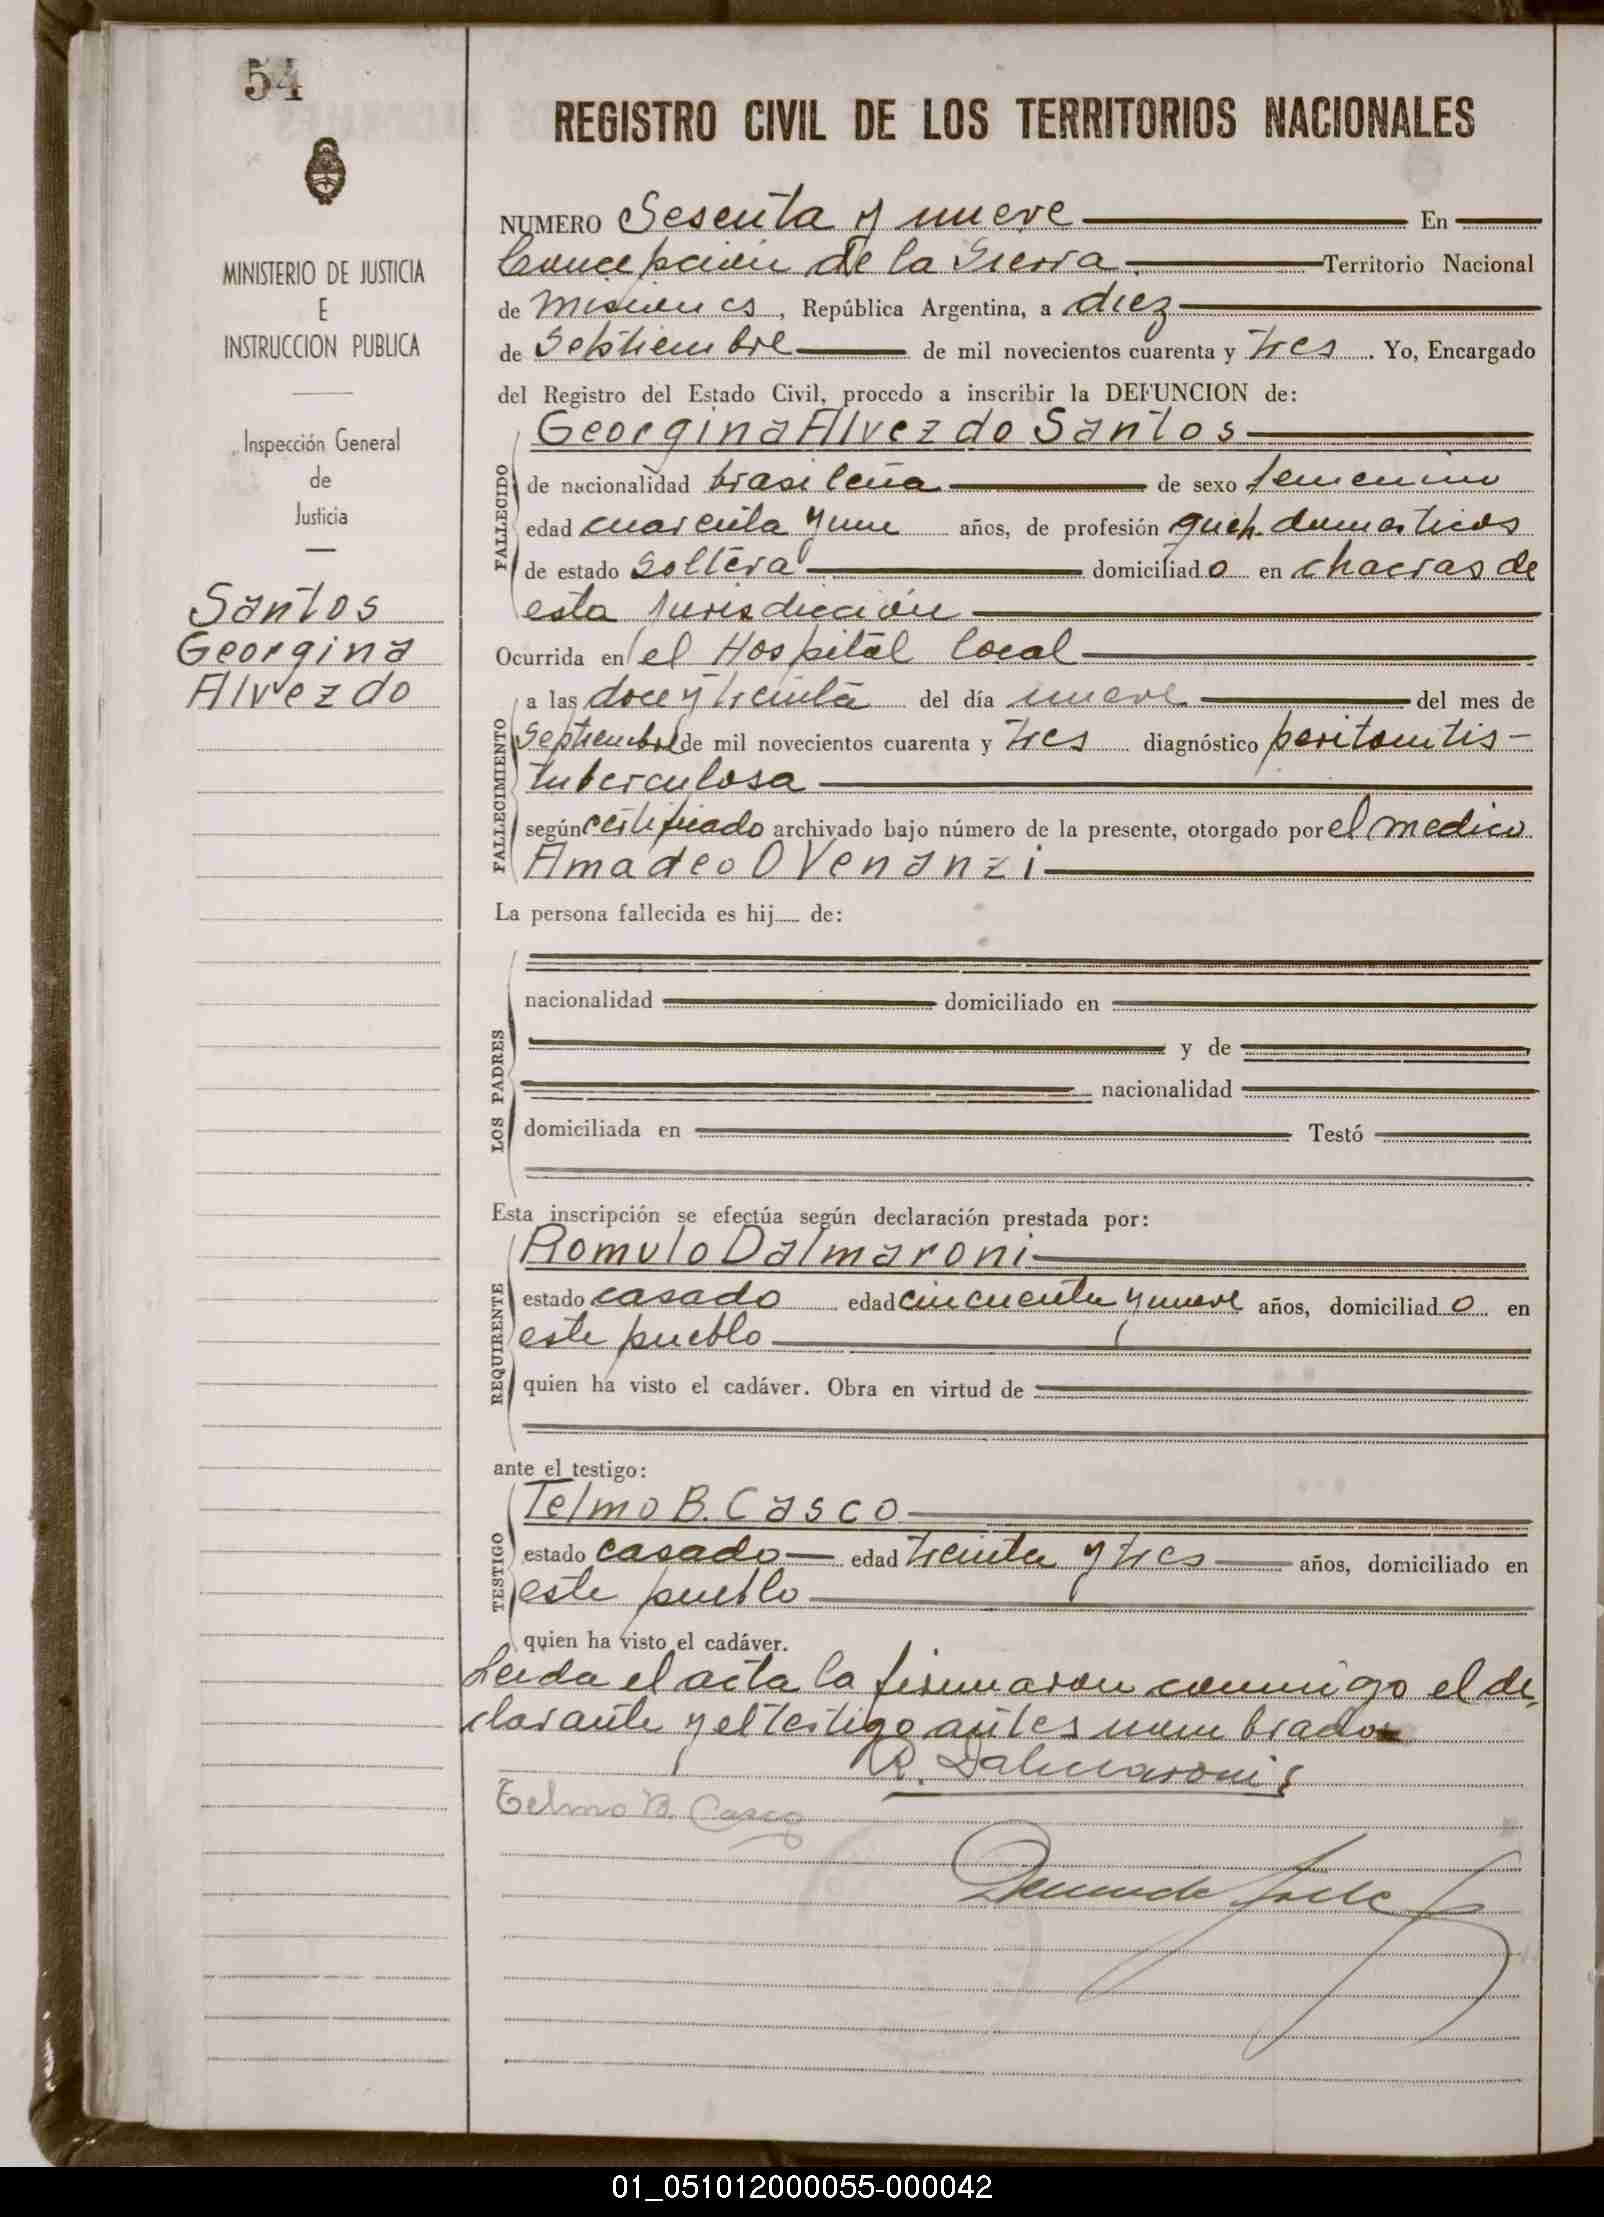 54
MINISTERIO DE JUSTICIA
E
INSTRUCCION PUBLICA
Inspección General
de
Justicia
Santos
Georgina
Alvez do
REGISTRO CIVIL DE LOS TERRITORIOS NACIONALES
NUMERO Sesenta y nueve En
Concepción de la Sierra Territorio Nacional
de Misiones, República Argentina, a diez
de Septiembre de mil novecientos cuarenta y tres. Yo, Encargado
del Registro del Estado Civil, procedo a inscribir la DEFUNCION de:
Georgina Alvez do Santos
FALLECIDO
de nacionalidad brasileña de sexo femenino
edad cuarenta y un años, de profesión queh. domesticos
de estado soltera domiciliado en chacras de
esta jurisdicción
Ocurrida en el Hospital local
FALLECIMIENTO
a las doce y treinta del día nueve del mes de
Septiembre de mil novecientos cuarenta y tres diagnóstico peritonitis-
tuberculosa
según certificado archivado bajo número de la presente, otorgado por el medico
Amadeo O Venanzi
La persona fallecida es hij de:
LOS PADRES
nacionalidad domiciliado en
y de
nacionalidad
domiciliada en Testó
Esta inscripción se efectúa según declaración prestada por:
REQUIRENTE
Romulo Dalmaroni
estado casado edad cincuenta y nueve años, domiciliado en
este pueblo
quien ha visto el cadáver. Obra en virtud de
ante el testigo:
TESTIGO
Telmo B. Casco
estado casado edad treinta y tres años, domiciliado en
este pueblo
quien ha visto el cadáver.
Leida el acta la firmaron conmigo el de-
clarante y el testigo antes nombrados
R. Dalmaroni
Telmo B. Casco
01_051012000055-000042